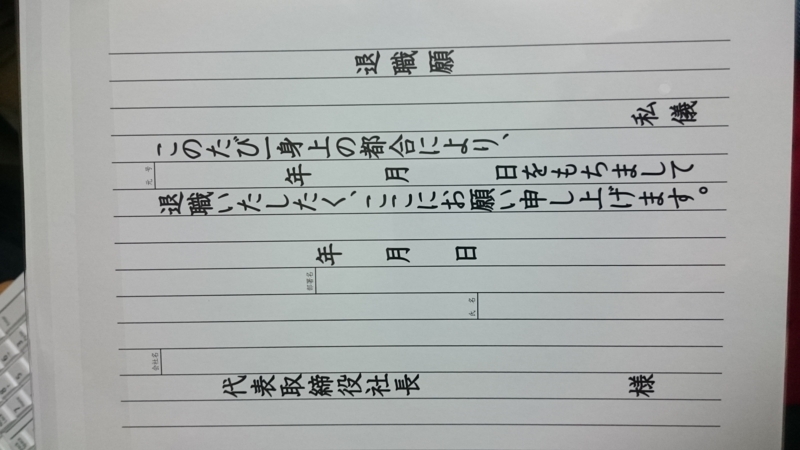 退職願
私儀
このたび一身上の都合により、
元号 年 月 日をもちまして
退職いたしたく、ここにお願い申し上げます。
年 月 日
部署名
氏名
会社名
代表取締役社長 様